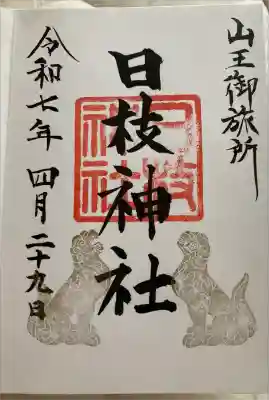 山王御旅所
日枝神社
日枝神社
令和七年 四月二十九日